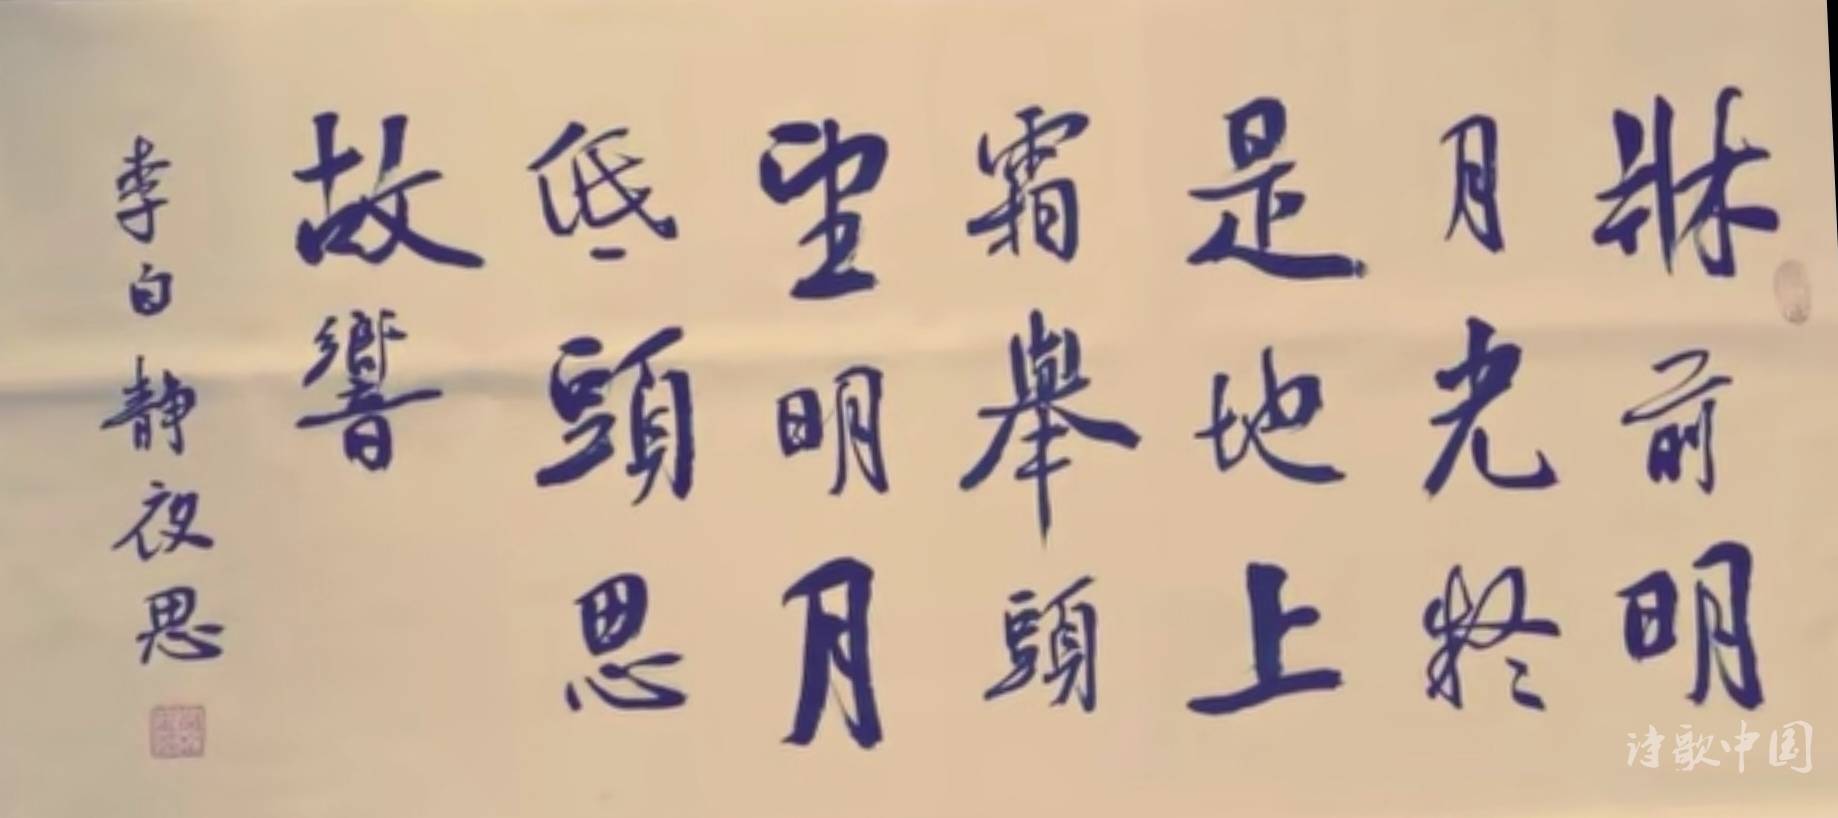 牀前明
月光疑
是地上
霜舉頭
望明月
低頭思
故響
李白静夜思
诗歌中国